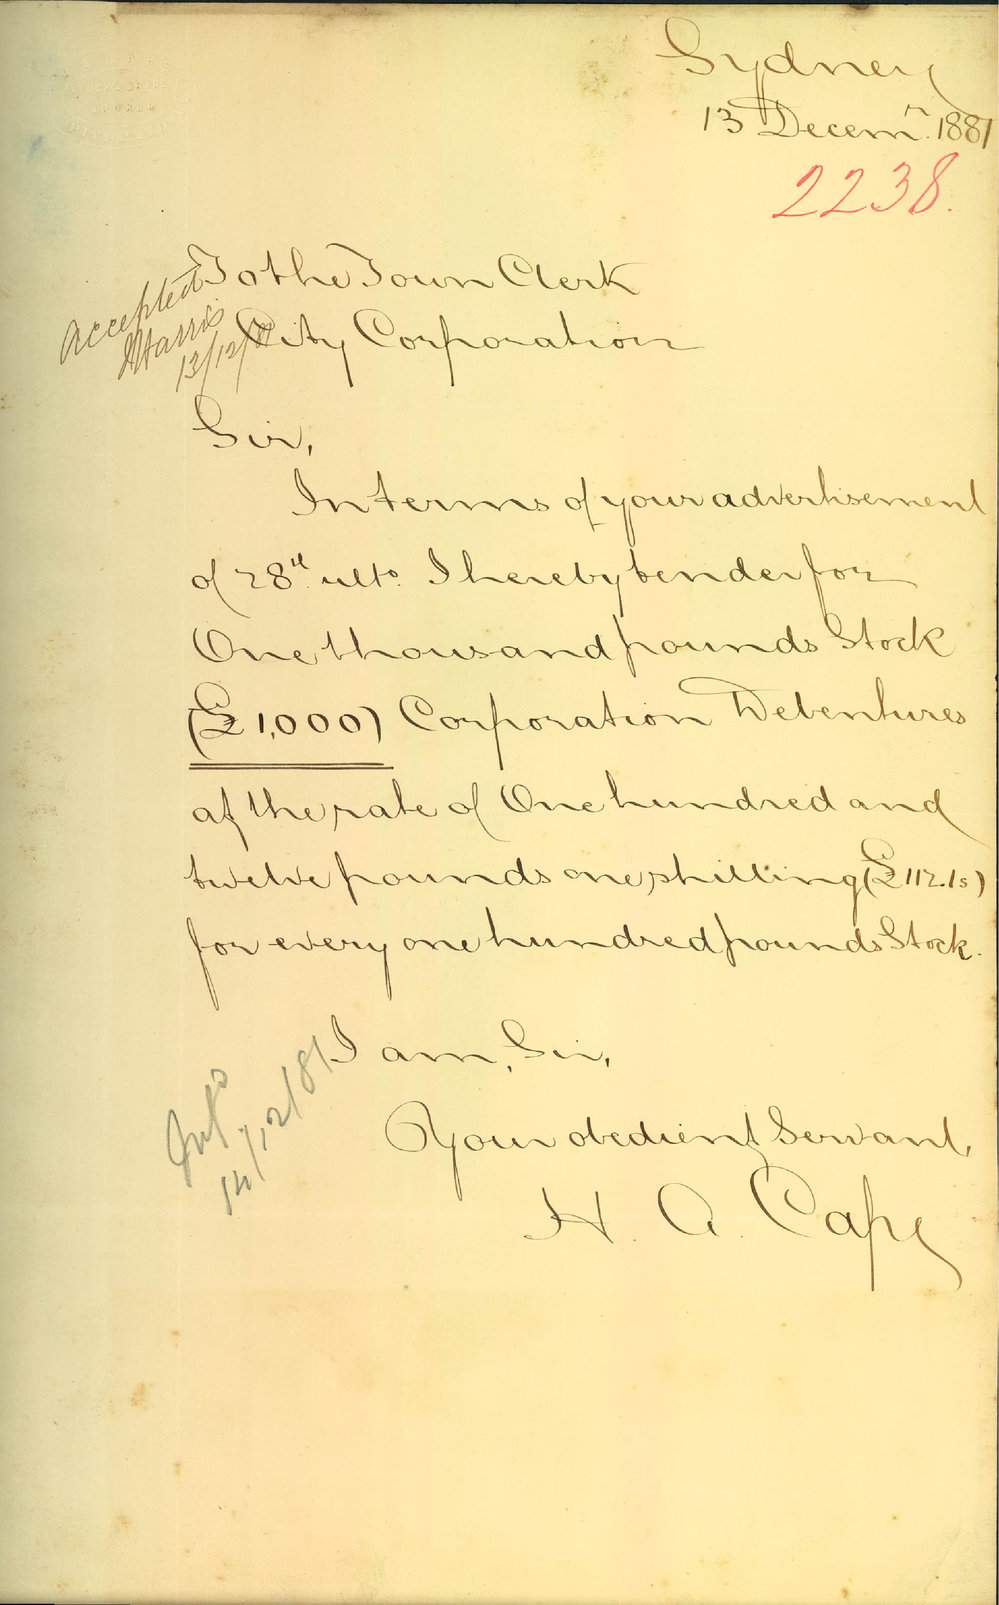 Sydney
13 Decemr. 1881
2238.
To the Town Clerk
City Corporation
Accepted
JHarris
13/12/81
Sir,
In terms of your advertisement
of 28th ulto. I hereby tender for
One thousand pounds Stock
(£1,000) Corporation Debentures
at the rate of One hundred and
twelve pounds one shilling (£112.1s)
for every one hundred pounds Stock.
I am, Sir,
Your obedient Servant,
H. A. Cape
Infd
14/12/81